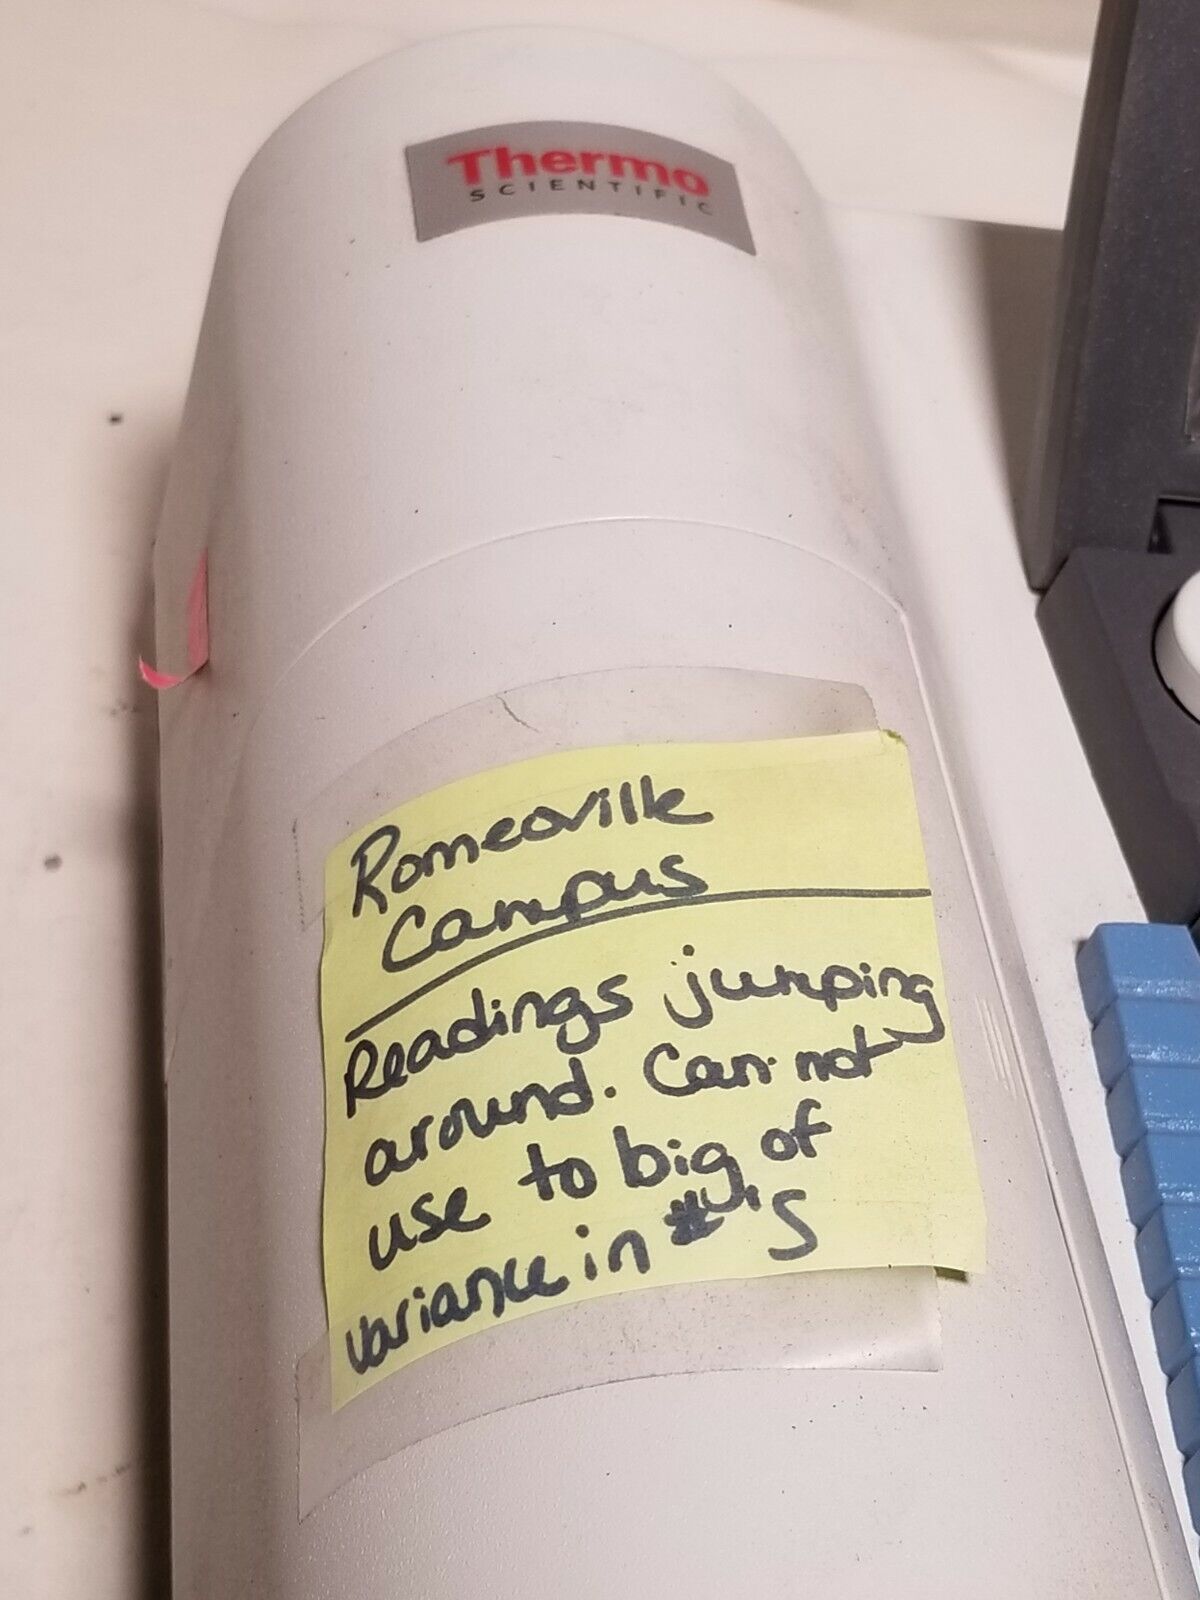 Thermo
SCIENTIFIC
Romeoville
Campus
Readings jumping
around. Can not
use to big of
variance in #'s